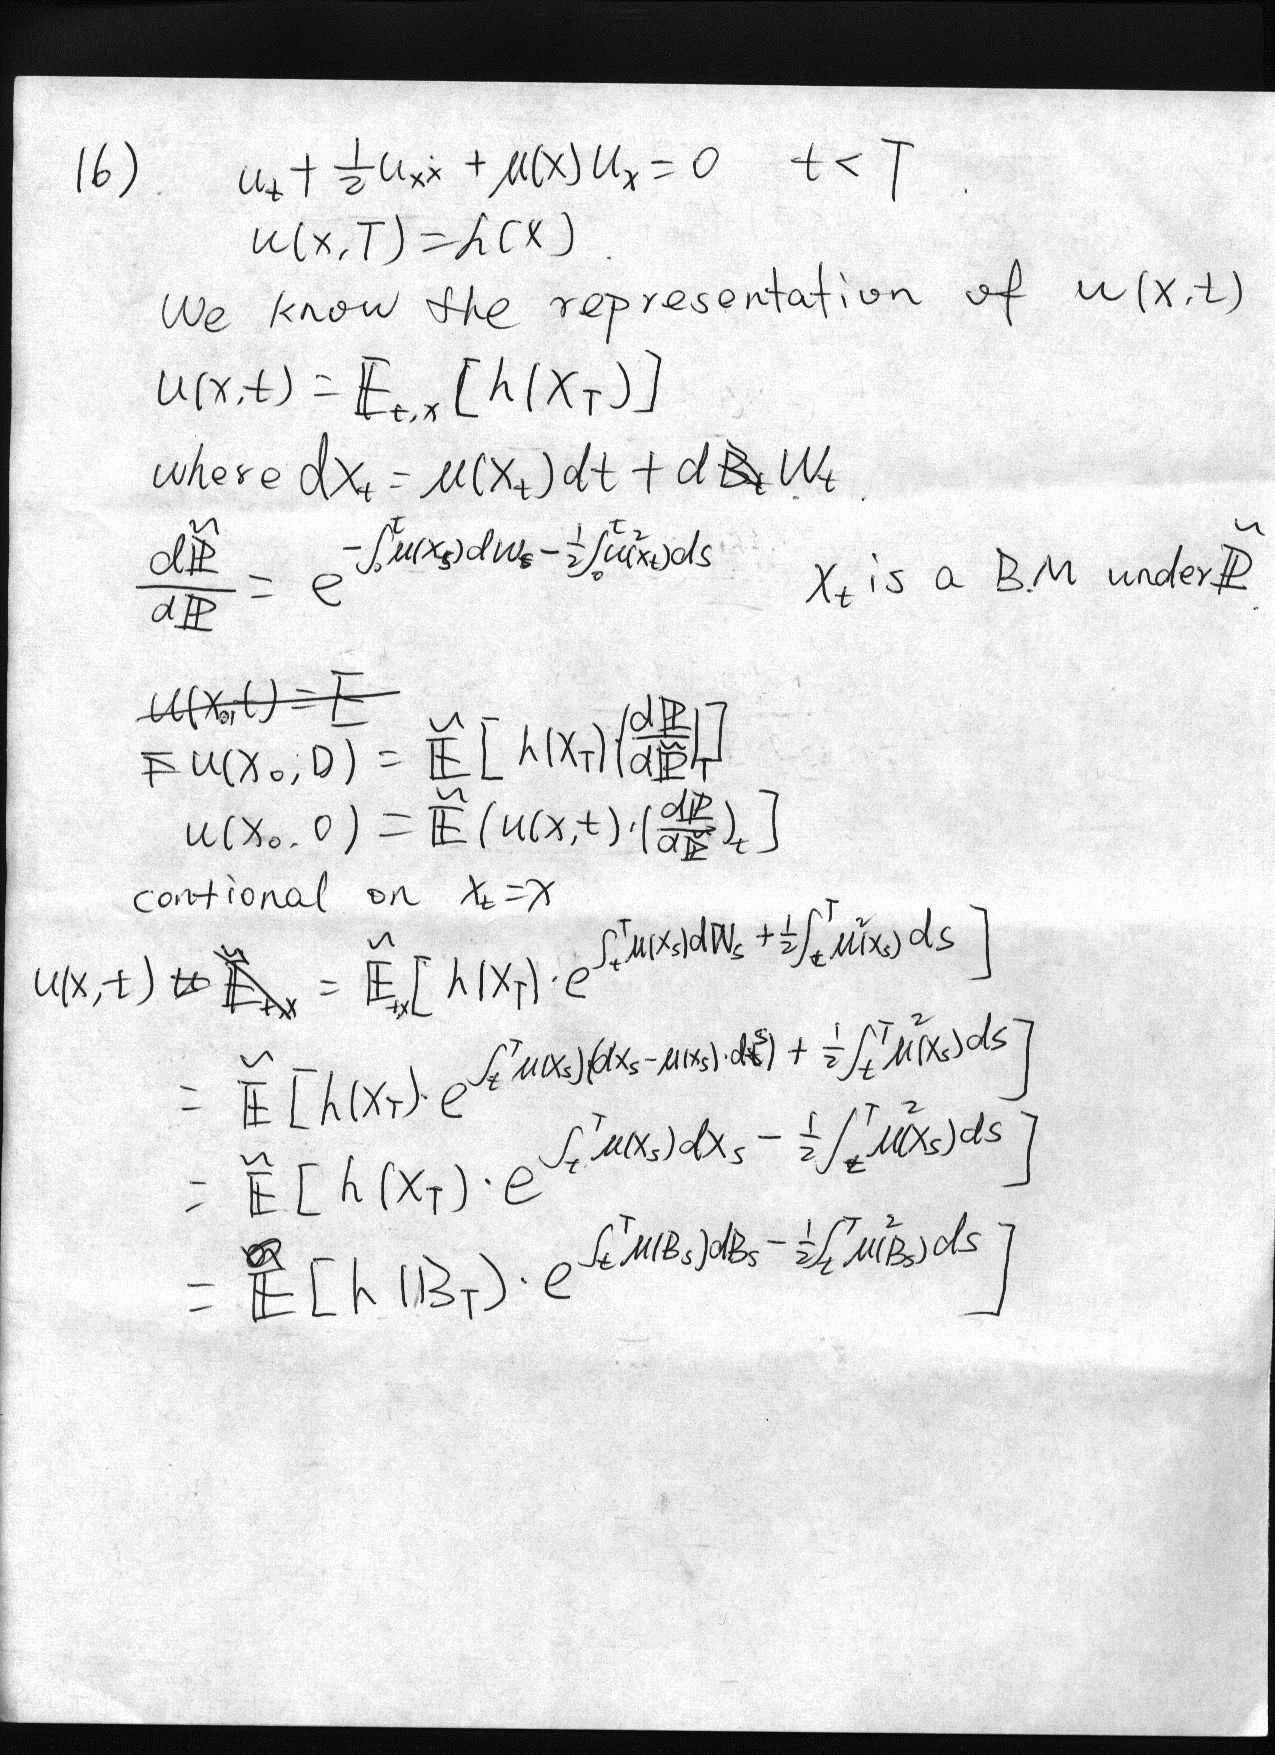 16) u_t + 1/2 u_xx + μ(x) u_x = 0 t < T
u(x,T) = h(x)
We know the representation of u(x,t)
u(x,t) = 𝔼_{t,x} [h(X_T)]
where dX_t = μ(X_t)dt + d W_t
dℙ̃/dℙ = e^{-∫_0^t μ(X_s)dW_s - 1/2 ∫_0^t μ²(X_t)ds} X_t is a B.M under ℙ̃.
u(x_0,t) = E
u(X_0, 0) = 𝔼̃ [ h(X_T) (dℙ/dℙ̃)_T ]
u(X_0, 0) = 𝔼̃ (u(x,t)·(dℙ/dℙ̃)_t ]
contional on X_t = x
u(x,t) = 𝔼̃_{tx} [ h(X_T) · e^{∫_t^T μ(X_s)dW_s + 1/2 ∫_t^T μ²(X_s) ds} ]
= 𝔼̃ [ h(X_T) · e^{∫_t^T μ(X_s)(dX_s - μ(X_s)·ds) + 1/2 ∫_t^T μ²(X_s)ds} ]
= 𝔼̃ [ h(X_T) · e^{∫_t^T μ(X_s)dX_s - 1/2 ∫_t^T μ²(X_s)ds} ]
= 𝔼 [ h(B_T) · e^{∫_t^T μ(B_s)dB_s - 1/2 ∫_t^T μ²(B_s)ds} ]